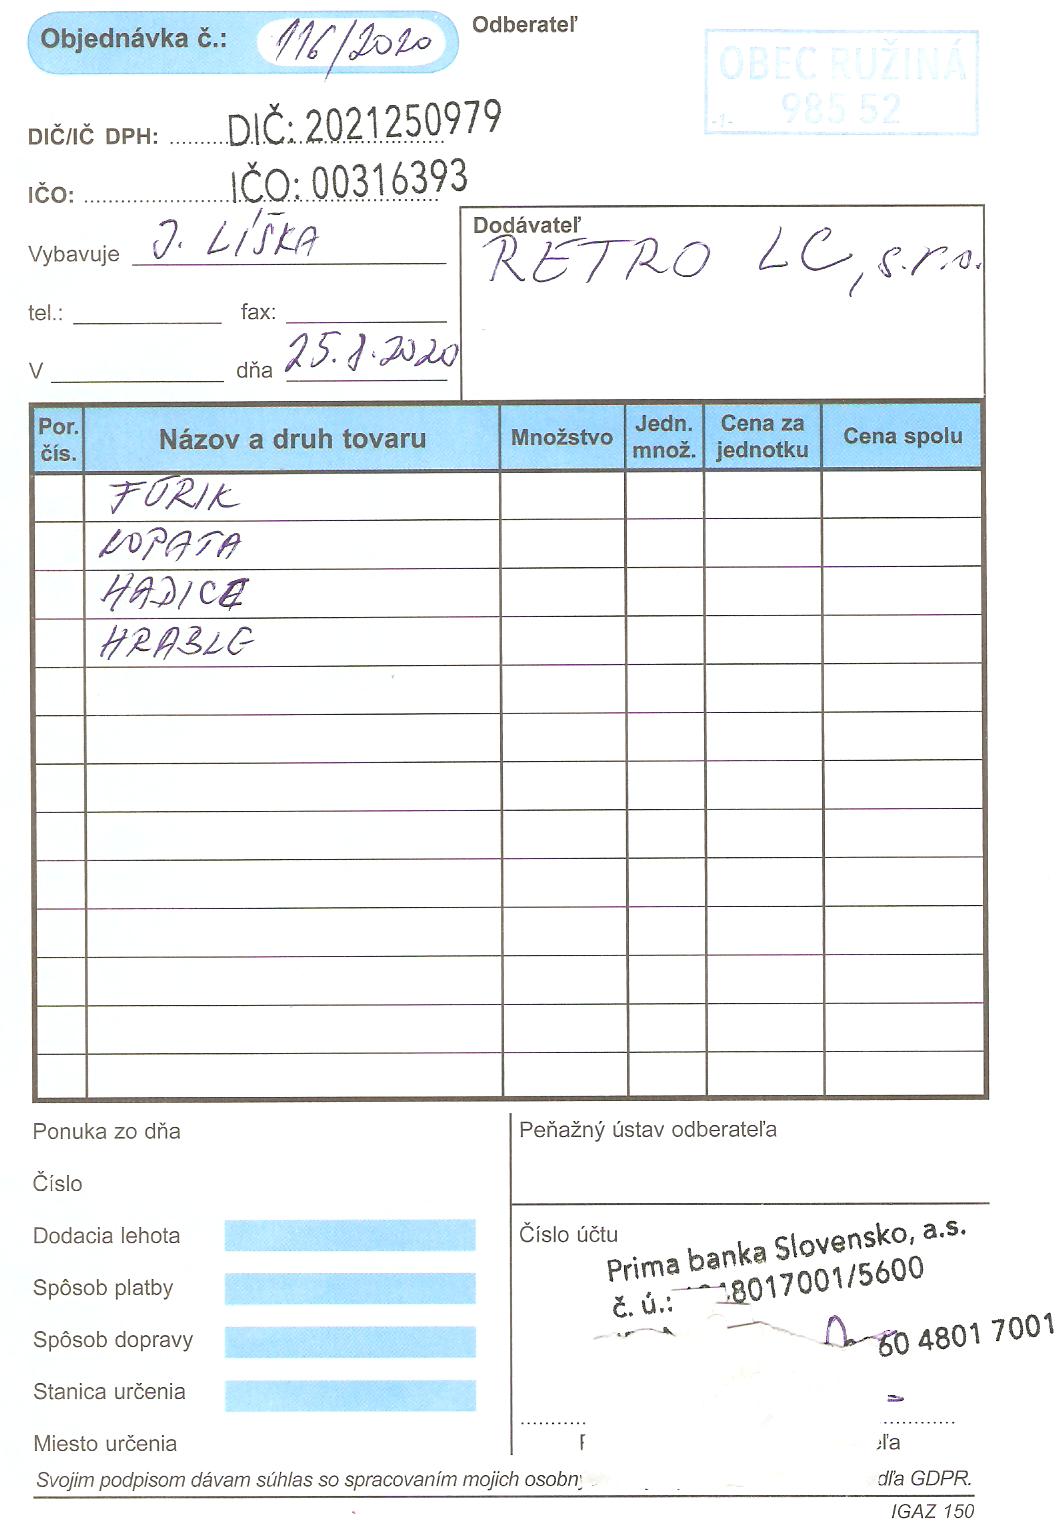 Objednávka č.: 116/2020
Odberateľ
OBEC RUŽINÁ
985 52
-1-
DIČ/IČ DPH: DIČ: 2021250979
IČO: IČO: 00316393
Vybavuje J. LÍŠKA
Dodávateľ
RETRO LC, s.r.o.
tel.: fax:
V dňa 25.8.2020
Por. čís. Názov a druh tovaru Množstvo Jedn. množ. Cena za jednotku Cena spolu
FÚRIK
LOPATA
HADICE
HRABLE
Ponuka zo dňa
Číslo
Dodacia lehota
Spôsob platby
Spôsob dopravy
Stanica určenia
Miesto určenia
Peňažný ústav odberateľa
Číslo účtu
Prima banka Slovensko, a.s.
č. ú.: 8017001/5600
60 4801 7001
Svojim podpisom dávam súhlas so spracovaním mojich GDPR.
IGAZ 150